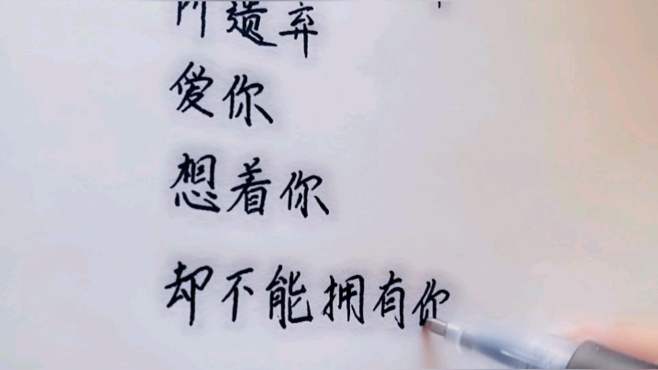 所遗弃
爱你
想着你
却不能拥有你